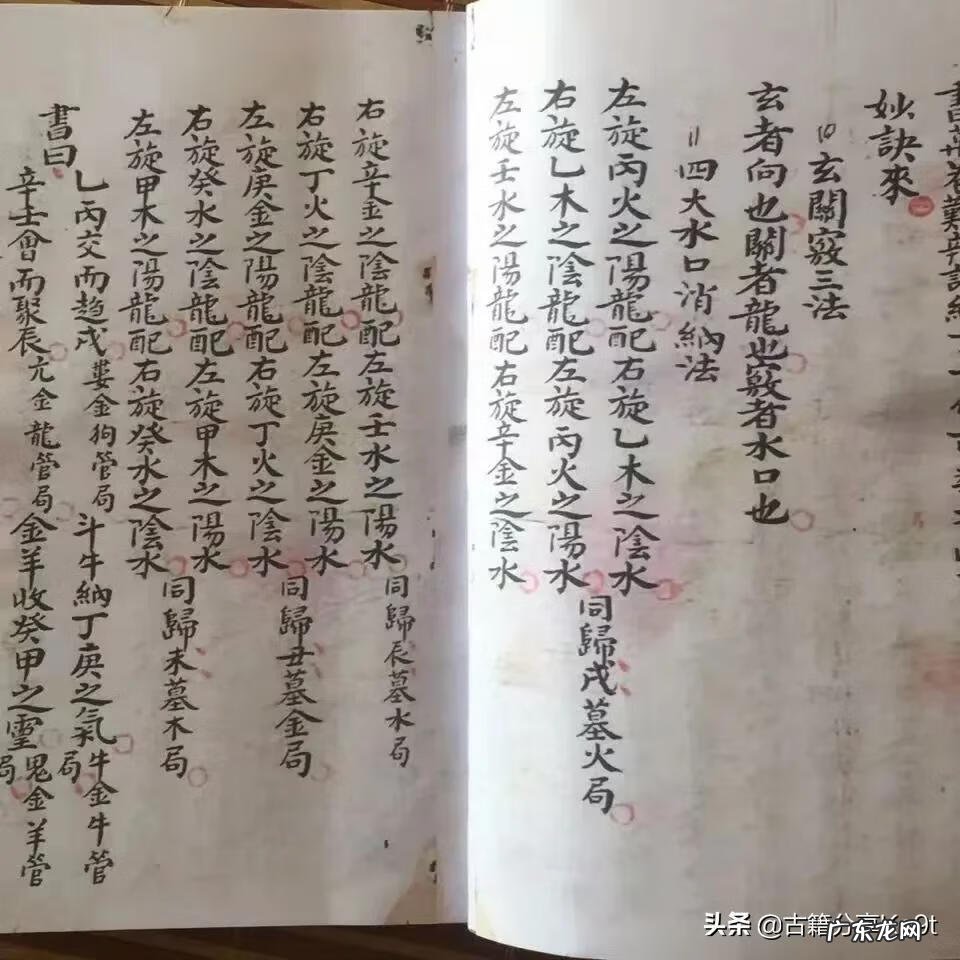 妙訣來
10玄關竅三法
玄者向也關者龍也竅者水口也
11四大水口消納法
左旋丙火之陽龍配右旋乙木之陰水
右旋乙木之陰龍配左旋丙火之陽水
同歸戌墓火局
左旋壬水之陽龍配右旋辛金之陰水
右旋辛金之陰龍配左旋壬水之陽水
同歸辰墓水局
右旋丁火之陰龍配左旋庚金之陽水
左旋庚金之陽龍配右旋丁火之陰水
同歸丑墓金局
右旋癸水之陰龍配左旋甲木之陽水
左旋甲木之陽龍配右旋癸水之陰水
同歸未墓木局
書曰乙丙交而趨戌婁金狗管局斗牛納丁庚之氣牛金牛管局
辛壬會而聚辰亢金龍管局金羊收癸甲之靈鬼金羊管局
头条 @古籍分享
广东龙网